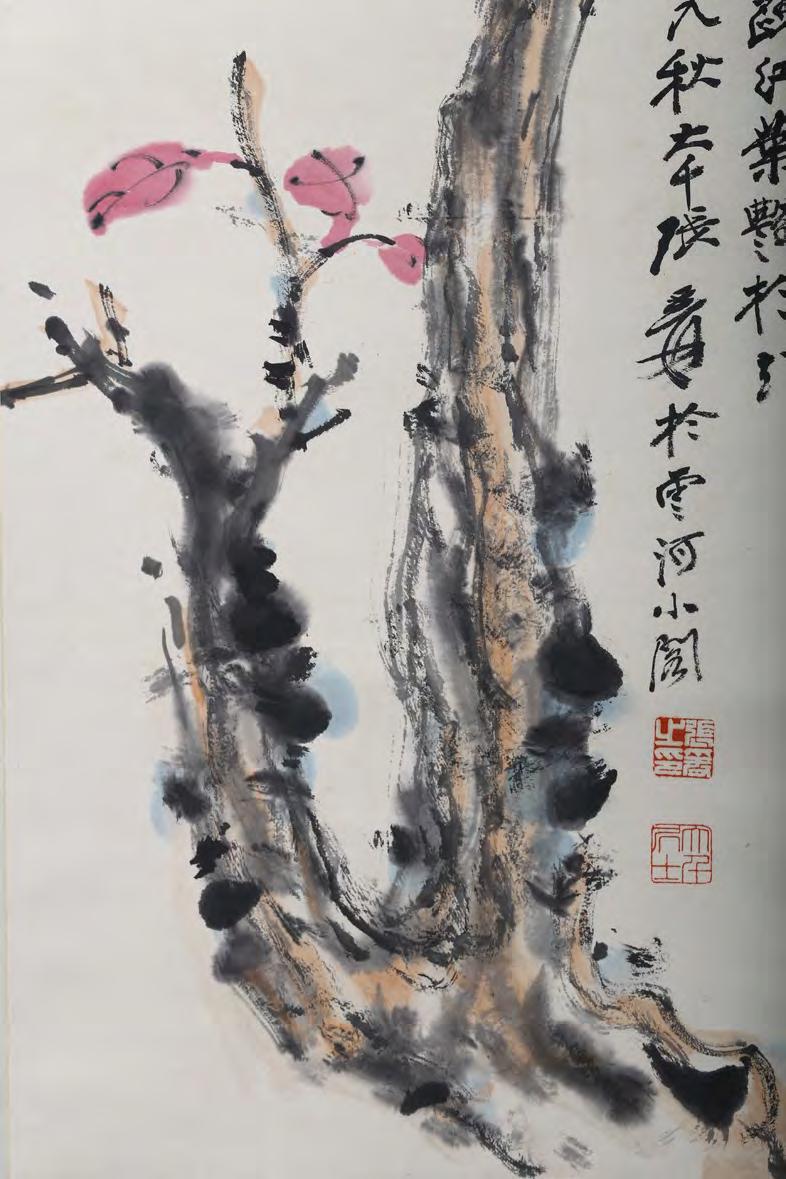 紅葉艷於二
秋大千張爰於雲河小閣
張爰之印
大千居士